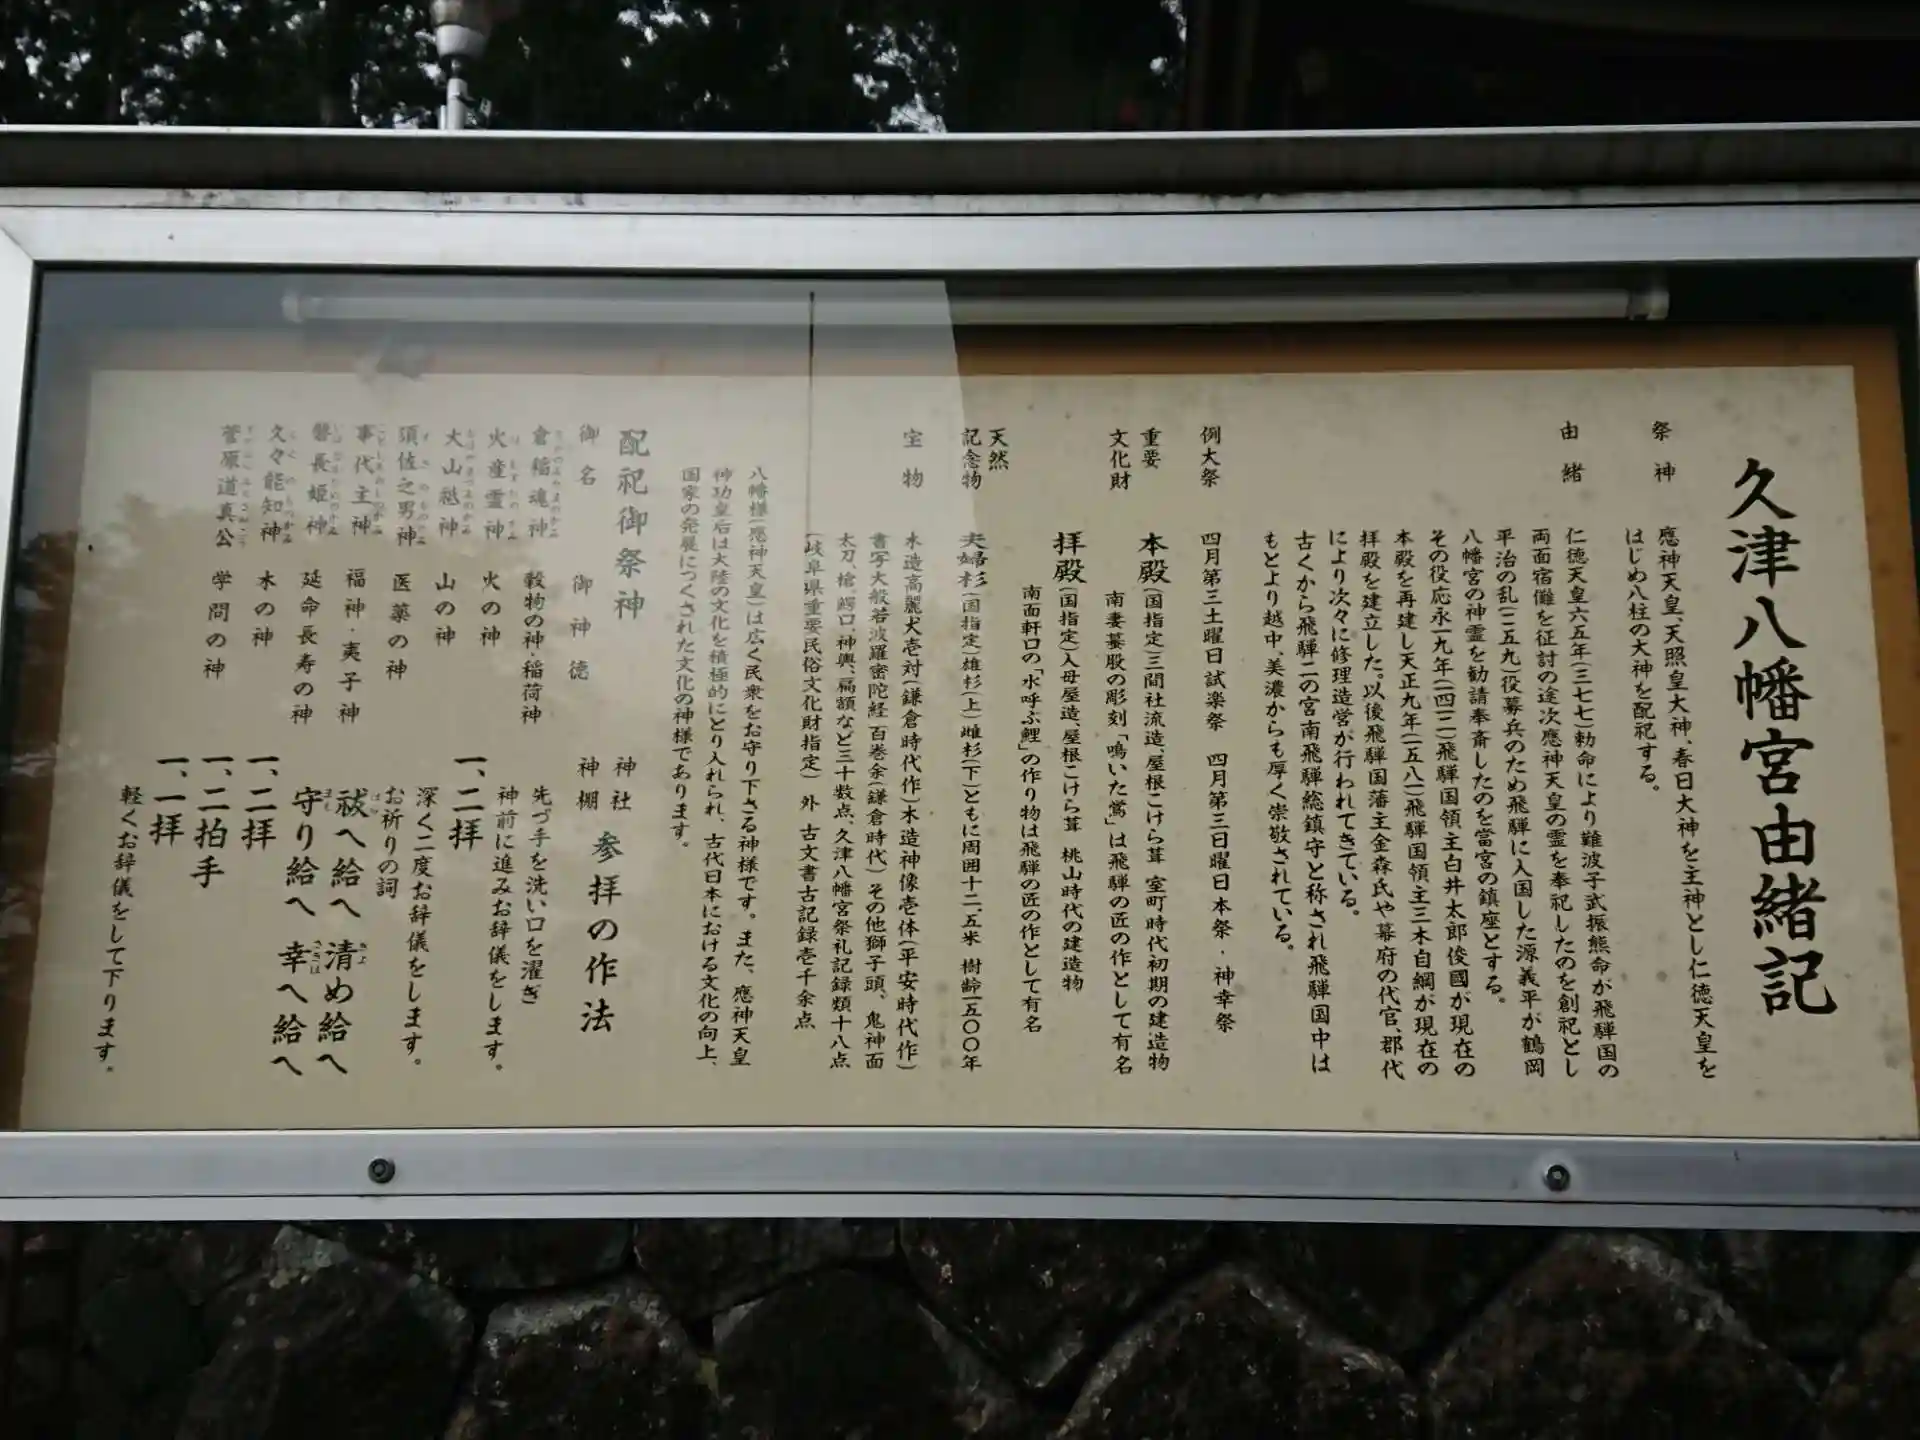 久津八幡宮由緒記
祭神
應神天皇、天照皇大神、春日大神を主神とし仁徳天皇を
はじめ八柱の大神を配祀する。
由緒
仁徳天皇六五年(三七七)勅命により難波子武振熊命が飛騨国の
両面宿儺を征討の途次應神天皇の霊を奉祀したのを創祀とし
平治の乱(一一五九)役募兵のため飛騨に入国した源義平が鶴岡
八幡宮の神霊を勧請奉斎したのを當宮の鎮座とする。
その役応永一九年(一四一二)飛騨国領主白井太郎俊國が現在の
本殿を再建し天正九年(一五八一)飛騨国領主三木自綱が現在の
拝殿を建立した。以後飛騨国藩主金森氏や幕府の代官、郡代
により次々に修理造営が行われてきている。
古くから飛騨二の宮南飛騨総鎮守と称され飛騨国中は
もとより越中、美濃からも厚く崇敬されている。
例大祭
四月第三土曜日試楽祭 四月第三日曜日本祭・神幸祭
重要
文化財
本殿(国指定)三間社流造、屋根こけら葺 室町時代初期の建造物
南妻蟇股の彫刻「鳴いた鶯」は飛騨の匠の作として有名
拝殿(国指定)入母屋造、屋根こけら葺 桃山時代の建造物
南面軒口の「水呼ぶ鯉」の作り物は飛騨の匠の作として有名
天然
記念物
夫婦杉(国指定)雄杉(上)雌杉(下)ともに周囲十二、五米 樹齢一五〇〇年
宝物
木造高麗犬壱対(鎌倉時代作)木造神像壱体(平安時代作)
書写大般若波羅密陀経一百巻余(鎌倉時代)その他獅子頭、鬼神面
太刀、槍、鰐口、神輿、扁額など三十数点、久津八幡宮祭礼記録類十八点
(岐阜県重要民俗文化財指定) 外 古文書古記録壱千余点
八幡様(應神天皇)は広く民衆をお守り下さる神様です。また、應神天皇
神功皇后は大陸の文化を積極的にとり入れられ、古代日本における文化の向上、
国家の発展につくされた文化の神様であります。
配祀御祭神
御名 御神徳
倉稲魂神 穀物の神・稲荷神
火産霊神 火の神
大山祇神 山の神
須佐之男神 医薬の神
事代主神 福神・夷子神
磐長姫神 延命長寿の神
久々能知神 木の神
菅原道真公 学問の神
神社
神棚
参拝の作法
先づ手を洗い口を濯ぎ
神前に進みお辞儀をします。
一、二拝
深く二度お辞儀をします。
お祈りの詞
祓へ給へ 清め給へ
守り給へ 幸へ給へ
一、二拝
一、二拍手
一、一拝
軽くお辞儀をして下ります。